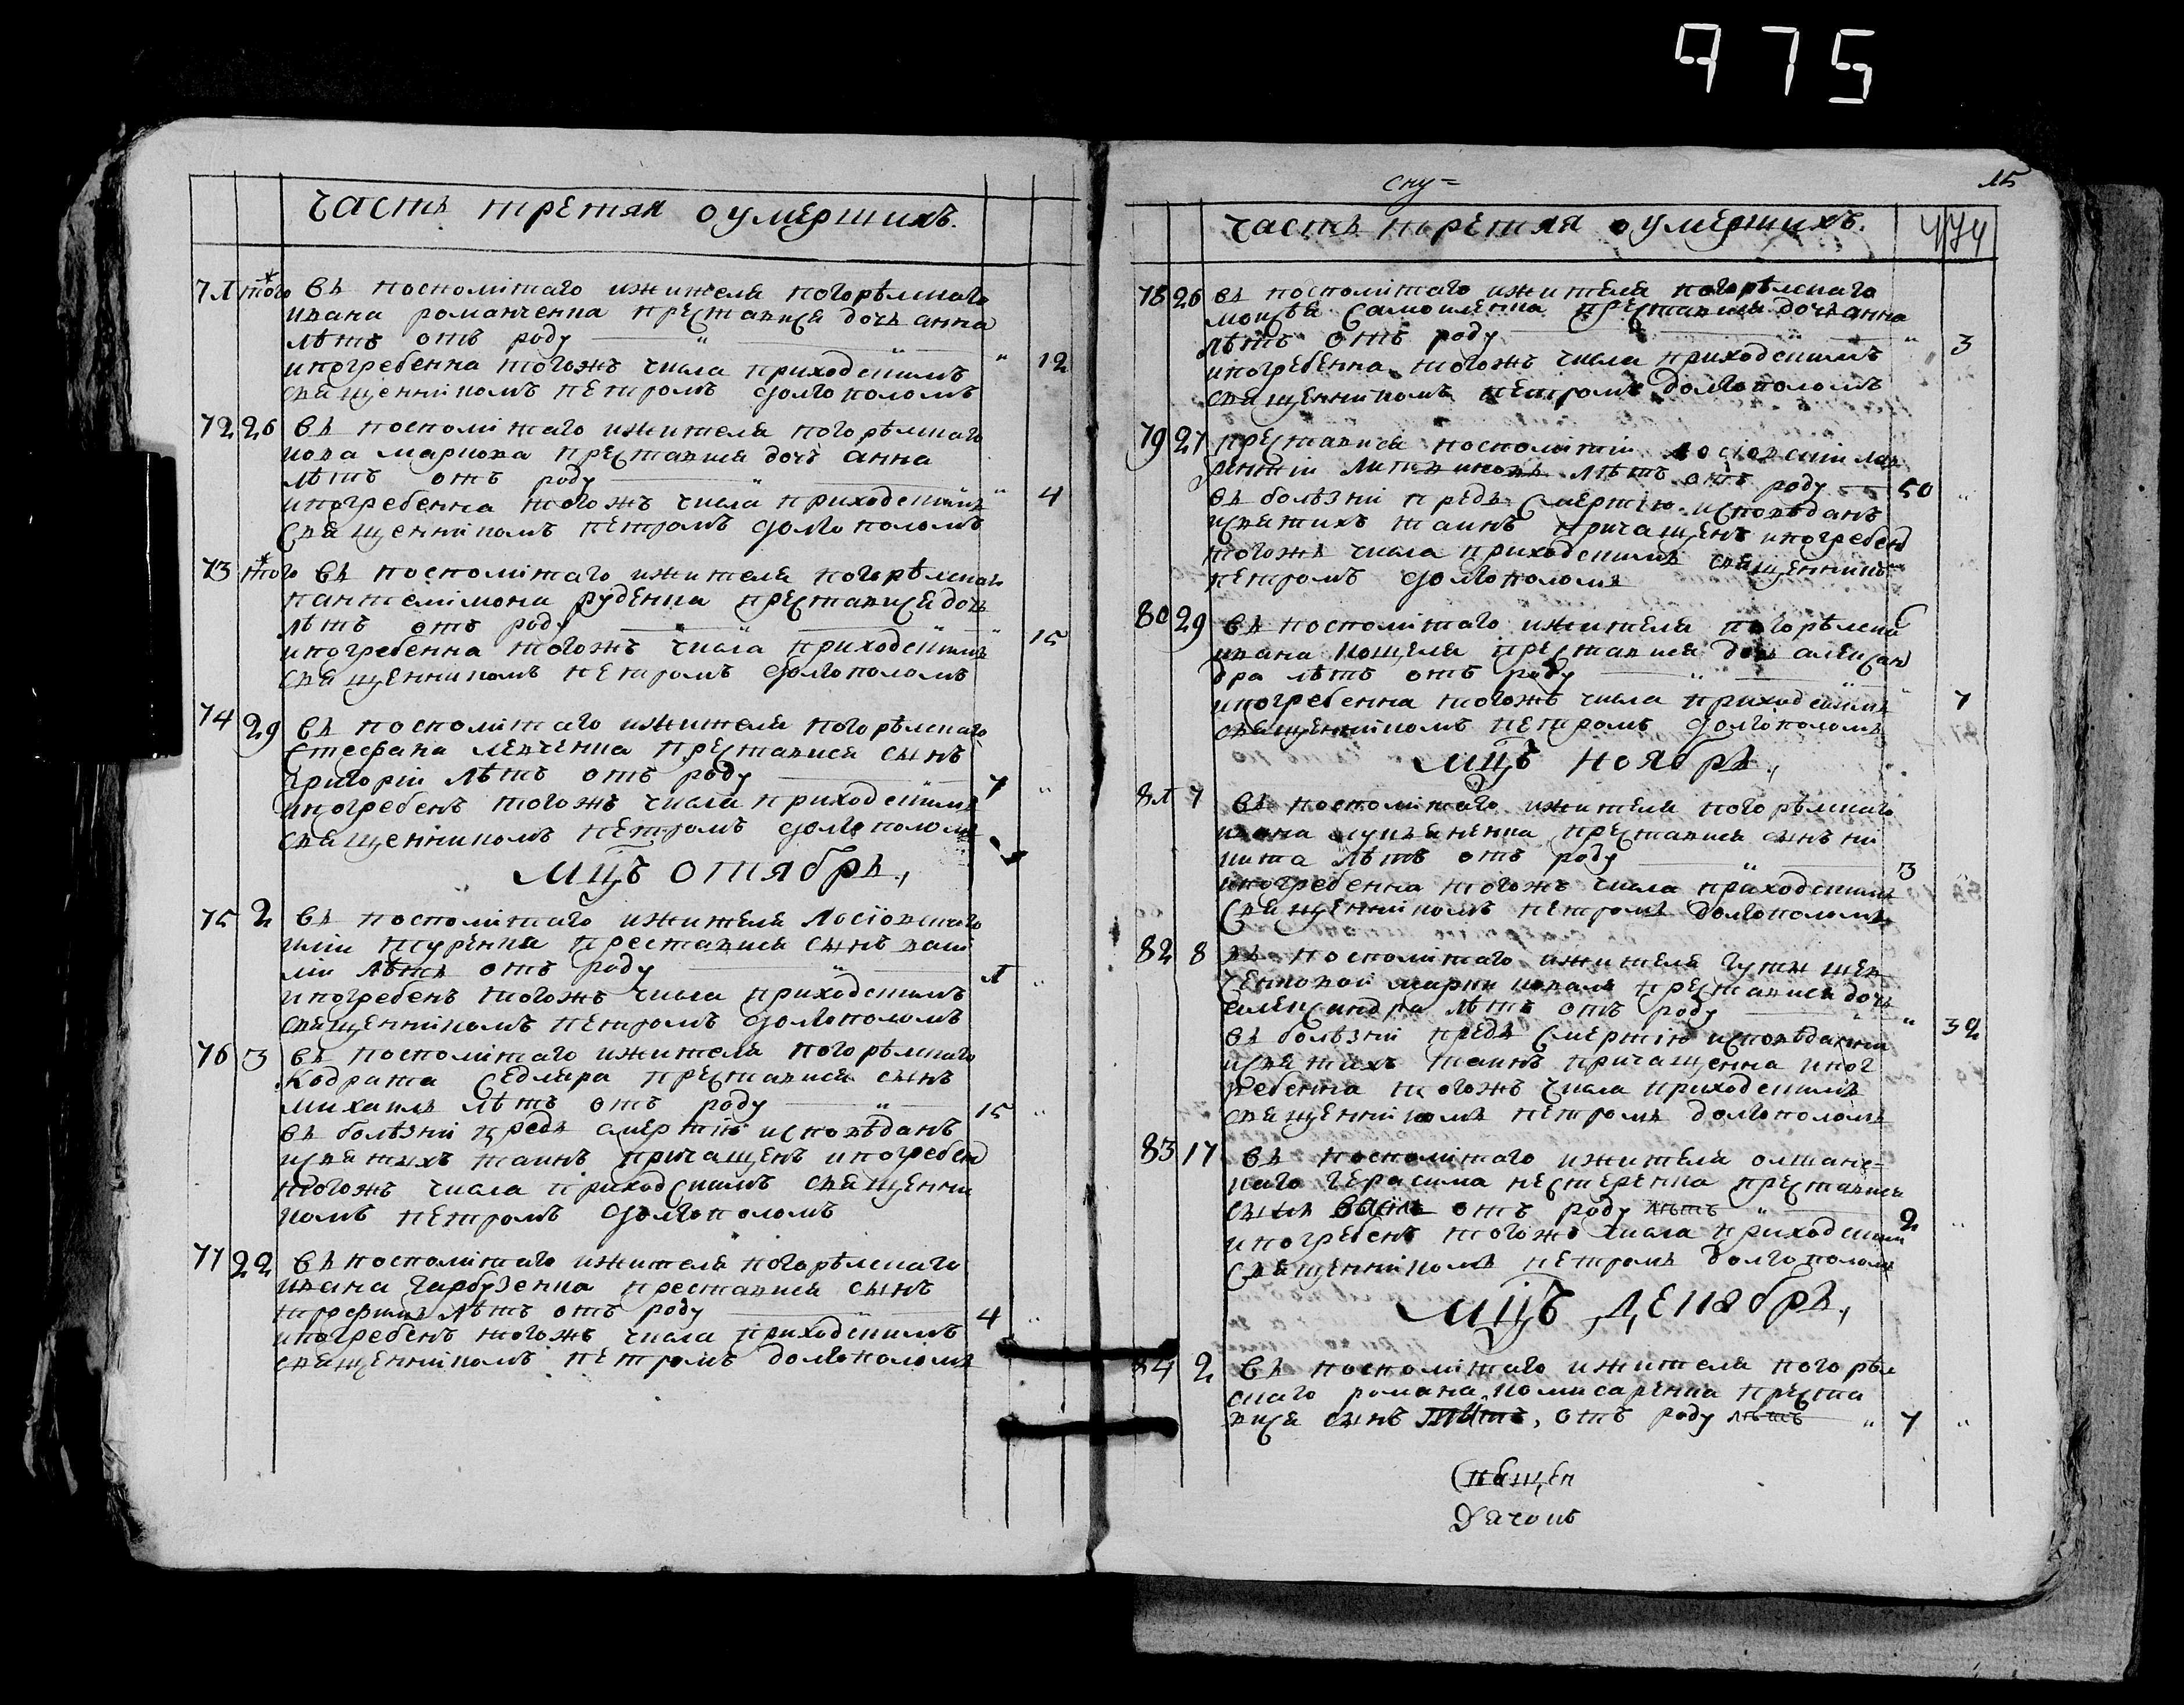 975
часть третая о умершихъ.
71 того въ посполитаго ижителя погорѣлскаго
ивана романченка преставися дочь анна
лѣтъ отъ роду " 12
ипогребенна тогожъ числа приходскимъ
священникомъ петромъ долгополомъ
72 26 въ посполитаго ижителя погорѣлскаго
преставися дочъ анна
лѣтъ отъ роду
ипогребенна тогожъ числа приходскимъ " 4
священникомъ петромъ долгополомъ
73 того въ посполитаго ижителя погорѣлскаго
пантелимона руденка преставися дочь
лѣтъ отъ роду
ипогребенна тогожъ числа приходскимъ " 15
священникомъ петромъ долгополомъ
74 29 въ посполитаго ижителя погорѣлскаго
стефана левченка преставися сынъ
григорій лѣтъ отъ роду 7 "
ипогребенъ тогожъ числа приходскимъ
священникомъ петромъ долгополомъ
мцъ октябрь.,
75 2 въ посполитаго ижителя
преставися сынъ васи
лій лѣтъ отъ роду 1 "
ипогребенъ тогожъ числа приходскимъ
священникомъ петромъ долгополомъ
76 3 въ посполитаго ижителя погорѣлскаго
Кодрата Седляра преставися сынъ
михаилъ лѣтъ отъ роду 15 "
въ болѣзни предъ смертію исповѣданъ
исвятыхъ таинъ причащенъ ипогребен
тогожъ числа приходскимъ священни
комъ петромъ долгополомъ
77 22 въ посполитаго ижителя погорѣлскаго
ивана гарбузенка преставися сынъ
трофимъ лѣтъ отъ роду 4 "
ипогребенъ тогожъ числа приходскимъ
священникомъ петромъ долгополомъ
сну=
15
часть третая о умершихъ. 474
78 26 въ посполитаго ижителя погорѣлскаго
моисѣя Самоиленка преставися дочь анна
лѣтъ отъ роду " 3
ипогребенна тогожъ числа приходскимъ
священникомъ петромъ долгополомъ
79 27 преставися посполитій лав
рентій лѣтъ отъ роду 50 "
въ болѣзни предъ смертію исповѣданъ
исвятихъ таинъ причащенъ ипогребен
тогожъ числа приходскимъ священником
петромъ долгополомъ
80 29 въ посполитаго ижителя погорѣлска
ивана кощеля преставися дочь алексан
дра лѣтъ отъ роду
ипогребенна тогожъ числа приходскимъ " 7
священникомъ петромъ долгополомъ
мцъ ноябрь.,
81 7 въ посполитаго ижителя погорѣлскаго
ивана преставися сынъ ни
кита лѣтъ отъ роду 3 "
ипогребенна тогожъ числа приходскимъ
священникомъ петромъ долгополомъ
82 8 въ посполитаго ижителя
преставися дочь
александра лѣтъ отъ роду " 32
въ болѣзни предъ смертію исповѣданна
исвятихъ таинъ причащенна ипог
ребенна тогожъ числа приходскимъ
священникомъ петромъ долгополомъ
83 17 въ посполитаго ижителя олшанс=
каго герасима нестеренка преставися
сынъ отъ роду лѣтъ 2 "
ипогребенъ тогожъ числа приходским
священникомъ петромъ долгополом
мцъ декабрь.,
84 2 въ посполитаго ижителя погорѣл
скаго романа комисаренка преста
вися сынъ отъ роду лѣтъ " 7 "
Священ
Дячокъ